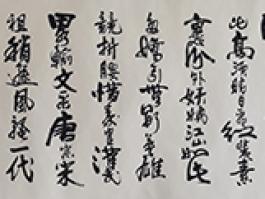 比高須晴日看紅裝素
裹分外妖嬈江山如此
多嬌引無數英雄
競折腰惜秦皇漢武
畧輸文采唐宗宋
祖稍遜風騷一代